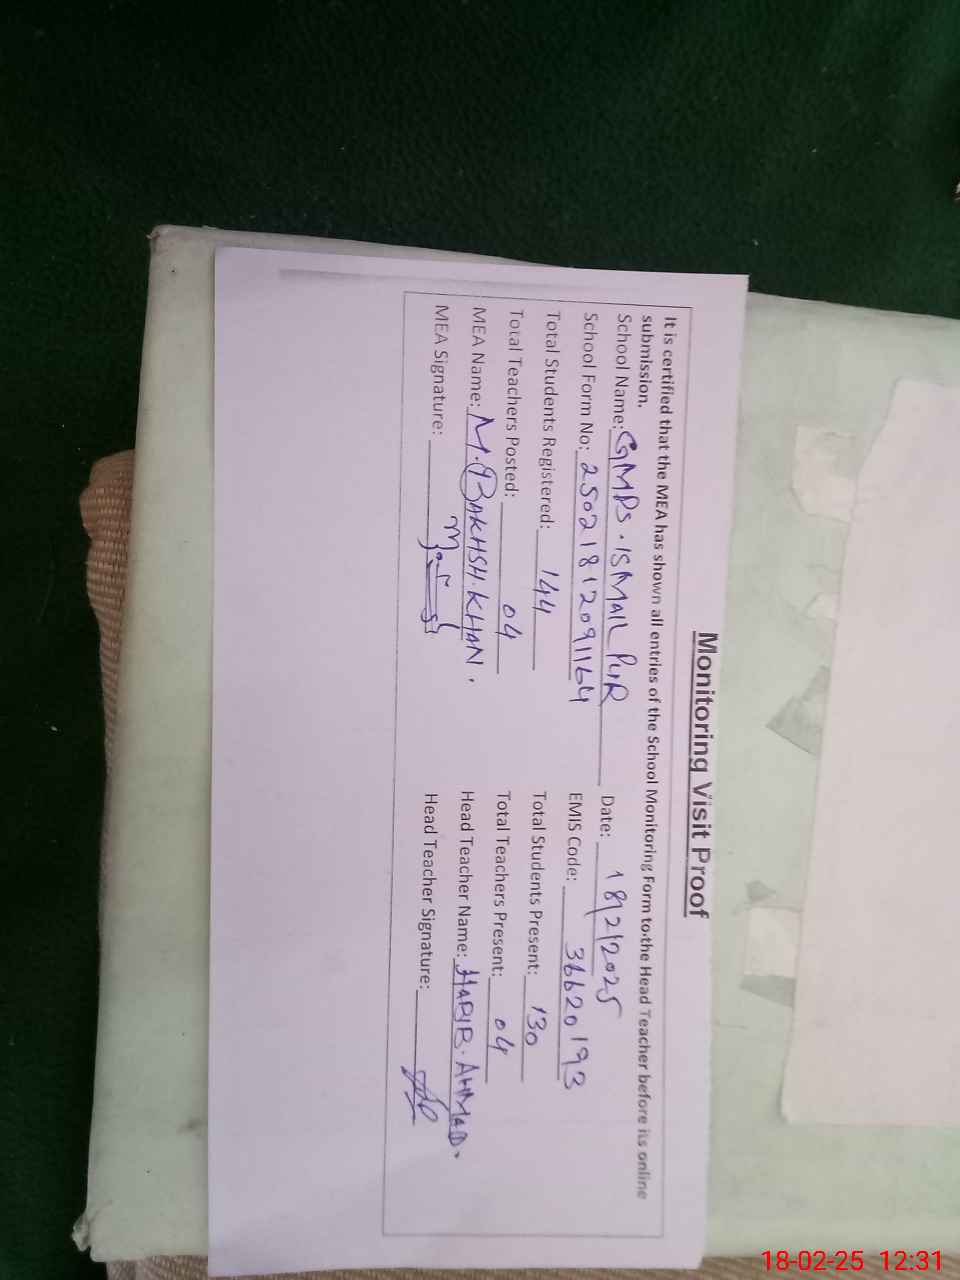 Monitoring Visit Proof
It is certified that the MEA has shown all entries of the School Monitoring Form to the Head Teacher before its online
submission.
School Name: GMPS. ISMAIL PUR Date: 18/2/2025
School Form No: 25021812091164 EMIS Code: 36620193
Total Students Registered: 144 Total Students Present: 130
Total Teachers Posted: 04 Total Teachers Present: 04
MEA Name: M. BAKHSH. KHAN. Head Teacher Name: HABIB. AHMAD.
MEA Signature: Head Teacher Signature:
18-02-25 12:31